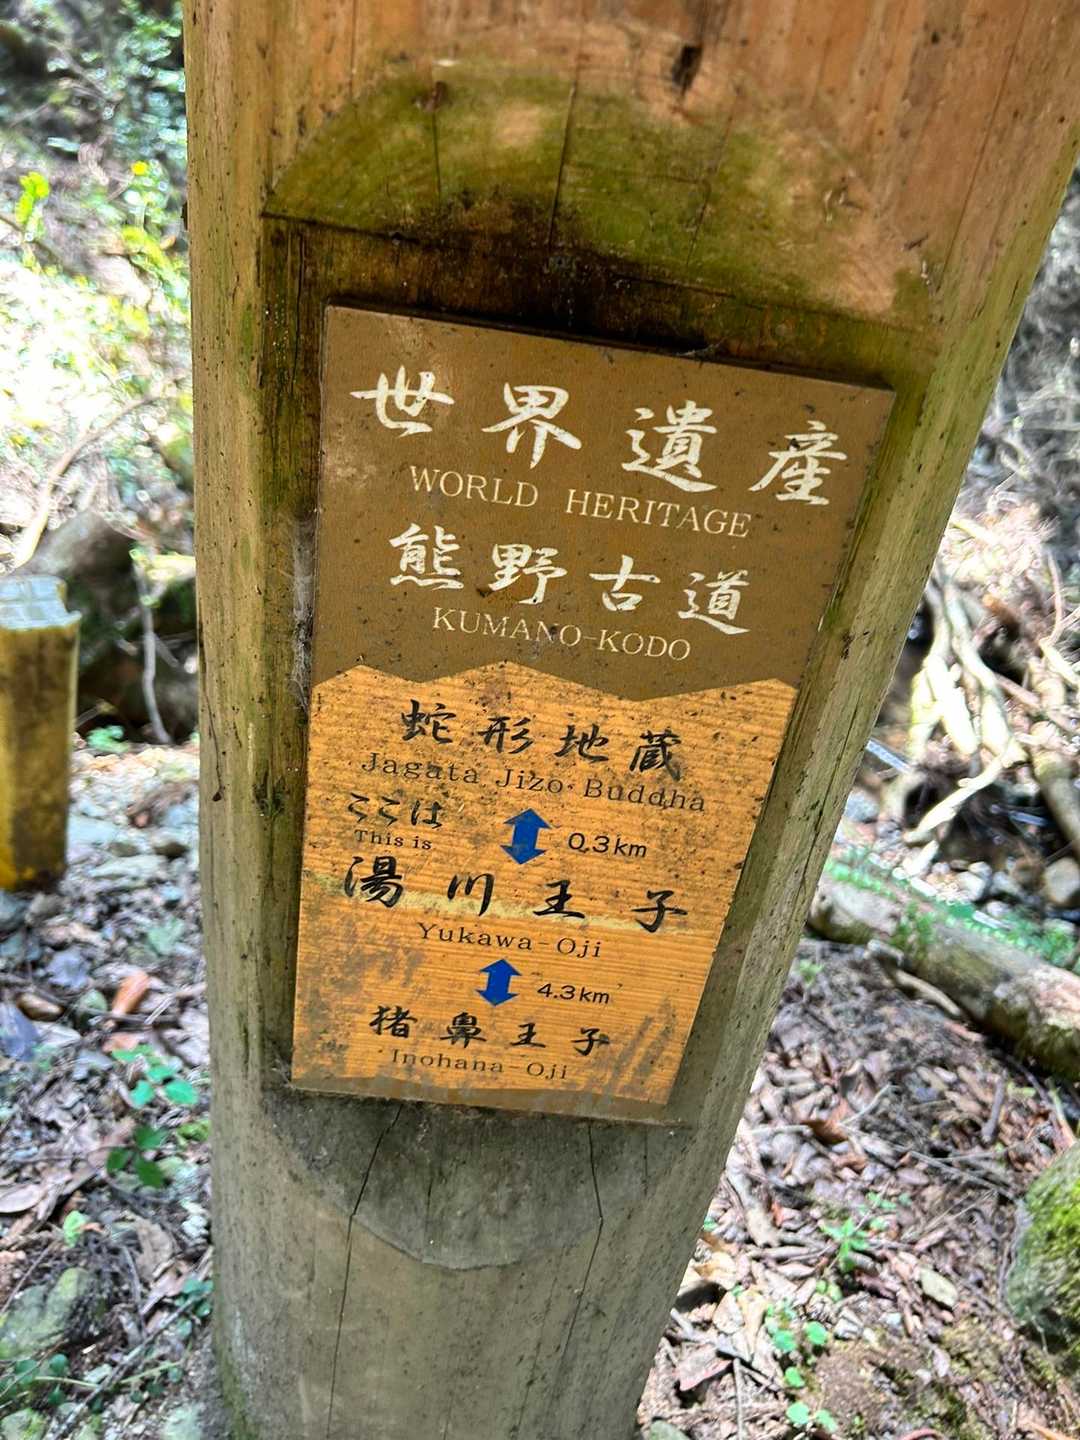 世界遺産
WORLD HERITAGE
熊野古道
KUMANO-KODO
蛇形地蔵
Jagata Jizo Buddha
ここは
This is
0.3km
湯川王子
Yukawa-Oji
4.3km
猪鼻王子
Inohana-Oji